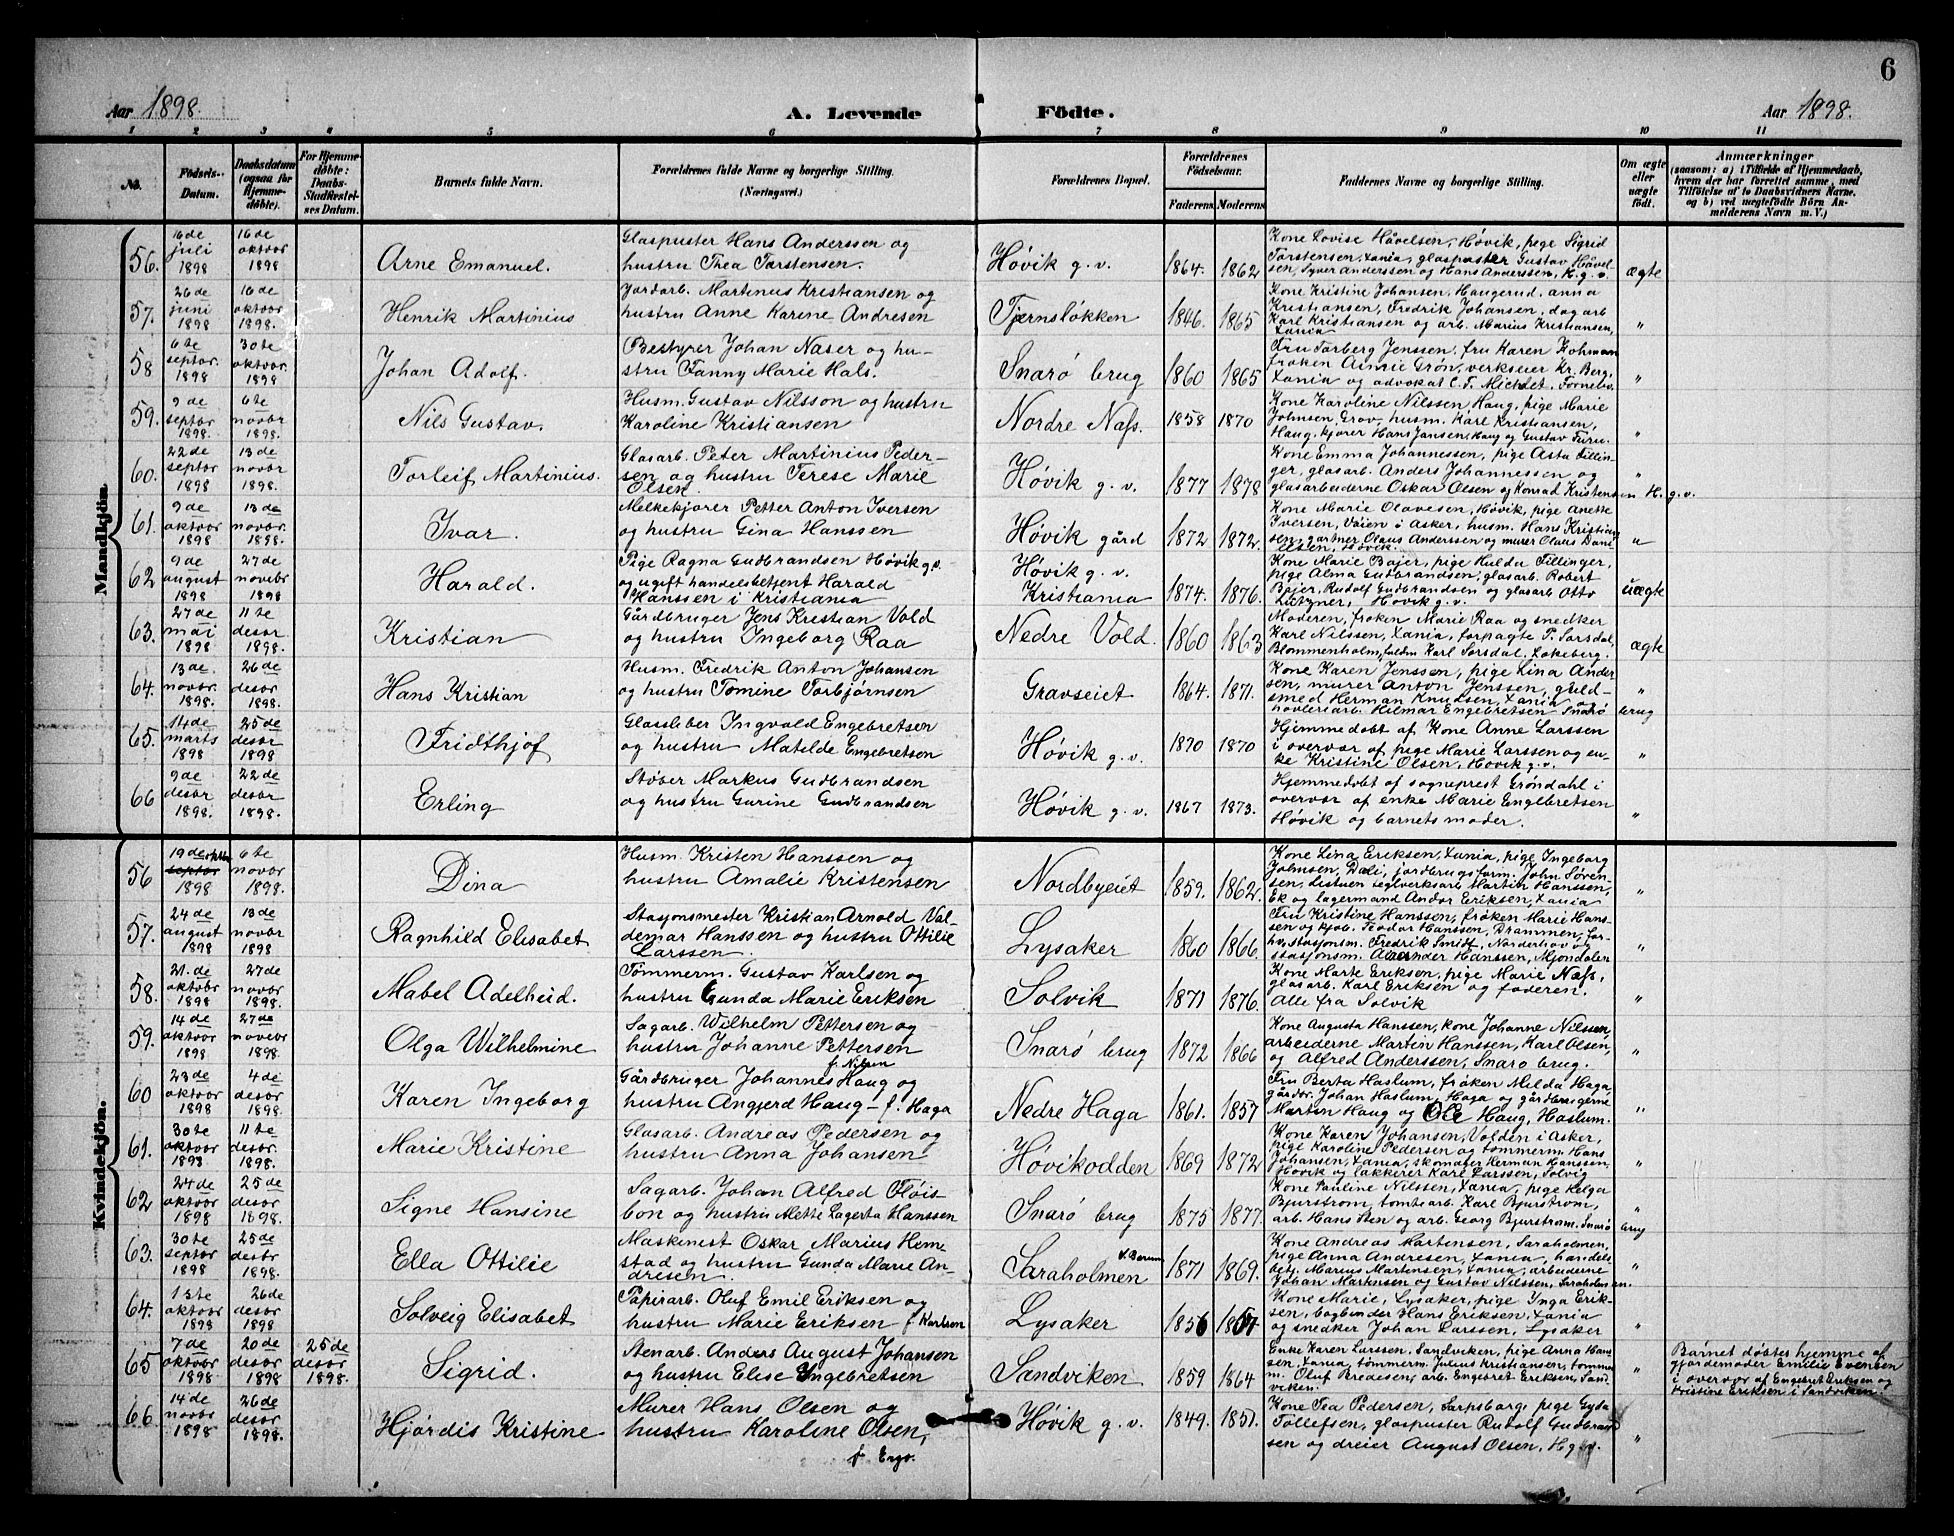 6
Aar 1898.
A. Levende Födte.
Aar 1898.
1 2 3 4 5 6 7 8 9 10 11
No.
Födsels-Datum.
Daabsdatum (ogsaa for Hjemme-döbte).
For Hjemme-döbte: Daabs-Stadfæstel-ses Datum.
Barnets fulde Navn.
Forældrenes fulde Navne og borgerlige Stilling. (Næringsvei.)
Forældrenes Bopæl.
Forældrenes Födselsaar.
Faderens. Moderens.
Faddernes Navne og borgerlige Stilling.
Om ægte eller uægte födt.
Anmærkninger
(saasom: a) i Tilfælde af Hjemmedaab, hvem der har forrettet samme, med Tilföielse af to Daabsvidners Navne, og b) ved uægtefödte Börn Anmelderens Navn m. V.)
Mandkjön.
56. 16de juli 1898 16de oktobr 1898 Arne Emanuel. Glaspuster Hans Anderssen og
hustru Thea Torstensen. Høvik g.v. 1864. 1862 Kone Lovise Håvelsen, Høvik, pige Sigrid
Torstensen, Xania, glaspuster Gustav Håvel-
sen, Syver Anderssen og Hans Anderssen, H.g.v. ægte
57. 26de juni 1898 16de oktobr 1898. Henrik Martinius Jordarb. Martinus Kristiansen og
hustru Anne Karine Andresen Tjernsløkken 1846. 1865 Kone Kristine Johansen, Haugerud, anna
Kristiansen, Fredrik Johansen, dagarb
Karl Kristiansen og arb. Marius Kristiansen,
Xania "
58 6te septbr. 1898 30te oktobr. 1898 Johan Adolf. Bestyrer Johan Naser og hu-
stru Fanny Marie Hals. Snarø brug 1860 1865 Fru Torberg Jenssen, fru Karen Kohmann
frøken Aimie Grøn, verkseier Kr. Berg,
Xania og advokat C.F. Michelet, Fornebo. "
59. 9de septbr 1898 6te novbr 1898. Nils Gustav. Husm. Gustav Nilsson og hustru
Karoline Kristiansen Nordre Næss. 1858 1870 Kone Karoline Nilssen, Haug, pige Marie
Johnsen, Grav, husm. Karl Kristiansen,
Haug, kjører Hans Jansen, Haug og Gustav Furu. "
60. 22de septbr 1898 13de novbr 1898. Torleif Martinius. Glasarb. Peter Martinius Peder-
sen og hustru Terese Marie
Olsen. Høvik g.v. 1877 1878 Kone Emma Johannessen, pige Asta Tilling-
er, glasarb. Anders Johannessen og
glasarbeiderne Oskar Olsen og Konrad Kristensen H.g.v. "
61. 9de oktobr 1898 13de novbr. 1898 Ivar. Melkekjører Petter Anton Iversen
og hustru Gina Hanssen Høvik gård 1872 1872. Kone Marie Olavesen, Høvik, pige Anette
Iversen, Vøien i Asker, husm. Hans Kristian-
sen, gartner Olaus Anderssen og murer Olaus Dani-
elsen, Høvik. "
62 9de august 1898 27de novebr 1898 Harald. Pige Ragna Gudbrandsen Høvik g.v.
og ugift handelsbetjent Harald
Hanssen i Kristiania Høvik g.v.
Kristiania 1874. 1876. Kone Marie Bajer, pige Hulda Tillinger,
pige Alma Gudbrandsen, glasarb. Robert
Bajer, Rudolf Gudbrandsen og glasarb Otto
Lutzner, Høvik g.v. uægte
63. 27de mai 1898 11te desbr 1898. Kristian Gårdbruger Jens Kristian Vold
og hustru Ingeborg Raa Nedre Vold. 1860 1863 Moderen, frøken Marie Raa og snedker
Karl Nilssen, Xania, forpagter P. Sørsdal,
Blommenholm, fuldm Karl Sørsdal, Løkeberg. ægte
64. 13de novbr. 1898 26de desbr 1898. Hans Kristian Husm. Fredrik Anton Johansen
og hustru Tomine Torbjørnsen Gravseiet 1864. 1871. Kone Karen Jenssen, pige Lina Ander-
sen, murer Anton Jenssen, guld-
smed Herman Knudsen, Xania og
høvleriarb. Hilmar Engebretsen Snarø brug "
65. 14de marts 1898 25de desbr 1898 Fridthjof Glassleber Ingvold Engebretsen
og hustru Matilde Engebretsen Høvik g.v. 1870 1870 Hjemmedøbt af Kone Anne Larssen
i overvær af pige Marie Larssen og en-
ke Kristine Olsen, Høvik g.v. "
66 9de desbr 1898. 22de desbr 1898. Erling Støber Markus Gudbrandsen
og hustru Gurine Gudbrandsen Høvik g.v. 1867 1873. Hjemmedøbt af sogneprest Grøndahl i
overvær af enke Marie Engebretsen
Høvik og barnets moder. "
Kvindekjön.
56 19de septbr 1898 6te novbr 1898. Dina Husm. Kristen Hanssen og
hustru Amalie Kristensen Nordbyeiet 1859. 1862. Kone Lina Eriksen, Xania, pige Ingeborg
Johnsen, Dæli, jordbrugsform. John Søren-
sen, Listuen teglverksarb Martin Hanssen,
Ek og lagermand Andor Eriksen, Xania "
57. 24de august 1898 13de novbr 1898 Ragnhild Elisabet Stasjonsmester Kristian Arnold Val-
demar Hanssen og hustru Ottilie
Larssen. Lysaker 1860 1866. Fru Kristine Hanssen, frøken Marie Hans-
sen og kjøb. Teodor Hanssen, Drammen, for-
hv. stasjonsm. Fredrik Smidt, Norderhov og
stasjonsm. Alexander Hanssen, Mjøndalen "
58. 21.de oktobr 1898 27de novbr 1898. Mabel Adelheid. Tømmerm. Gustav Karlsen og
hustru Gunda Marie Eriksen Solvik 1871 1876. Kone Marte Eriksen, pige Marie Næss,
glasarb. Karl Eriksen og faderen.
Alle fra Solvik "
59. 14de oktobr 1898 27de novebr 1898. Olga Wilhelmine Sagarb. Wilhelm Pettersen og
hustru Johanne Pettersen
f. Nilsen Snarø brug 1872 1866 Kone Augusta Hanssen, kone Johanne Nilssen,
arbeiderne Martin Hanssen, Karl Olsen,
og Alfred Anderssen, Snarø brug. "
60 23de oktobr 1898 4de desbr 1898. Karen Ingeborg Gårdbruger Johannes Haug og
hustru Angjerd Haug - f. Haga Nedre Haga 1861. 1857 Fru Berta Haslum, frøken Milda Haga
gårdbr. Johan Haslum, Haga og gårdbrugerne
Martin Haug og Ole Haug, Haslum. "
61. 30te oktobr 1898 11te desbr. 1898. Marie Kristine Glasarb. Andreas Pedersen og
hustru Anna Johansen Høvikodden 1869 1872 Kone Karen Johansen, Volden i Asker,
pige Karoline Pedersen og tømmerm. Hans
Johansen, Xania, skomager Herman Hanssen,
Høvik og lakkerer Karl Larssen, Solvig "
62 24de oktobr 1898 25de desbr 1898. Signe Hansine Sagarb. Johan Alfred Fløis
bon og hustru Alette Lagerta Hanssen Snarø brug 1875 1877. Kone Pauline Nilssen, Xania, pige Helga
Bjurstrøm, tomtearb. Karl Bjurstrøm,
arb. Hans Sten og arb. Georg Bjurstrøm, Snarø brug "
63. 30te septbr 1898 25de desbr 1898. Ella Ottilie Maskinest Oskar Marius Hem-
stad og hustru Gunda Marie An-
dresen. Saraholmen V. Bærum 1871 1869. Kone Andreas Martensen, Saraholmen,
pige Anna Andresen, Xania, handels-
betj. Marius Martensen, Xania, arbeiderne
Johan Martensen og Gustav Nilssen, Saraholmen. "
64. 1ste oktobr 1898 26de desbr 1898 Solveig Elisabet Papirarb. Oluf Emil Eriksen og
hustru Marie Eriksen f Karlson Lysaker 1856 1857 Kone Marie, Lysaker, pige Inga Erik-
sen, bogbinder Hans Eriksen, Xania
og snedker Johan Larssen, Lysaker "
65 7de oktobr 1898 20de desbr 1898 25de desbr 1898. Sigrid. Stenarb. Anders August Johansen
og hustru Elise Yngebretsen Sandviken 1859 1864 Enke Karen Larssen, Sandviken, pige Anna Hans-
sen, Xania, tømmerm. Julius Kristiansen, tømmer
m. Oluf Bredesen, arb. Engebret Eriksen, Sand-
viken. " Barnet døbtes hjemme af
gjordemoder Emilie Evensen
i overvær af Engebret Eriksen og
Kristine Eriksen i Sandviken.
66. 14de novbr 1898 26de desbr 1898. Hjørdis Kristine Murer Hans Olsen og
hustru Karoline Olsen,
f. Ergo. Høvik g.v. 1849. 1851. Kone Tea Pedersen, Sarpsborg, pige Gyda
Tollefsen, glaspuster Rudolf Gudbrand
sen og dreier August Olsen, H.g.v. "